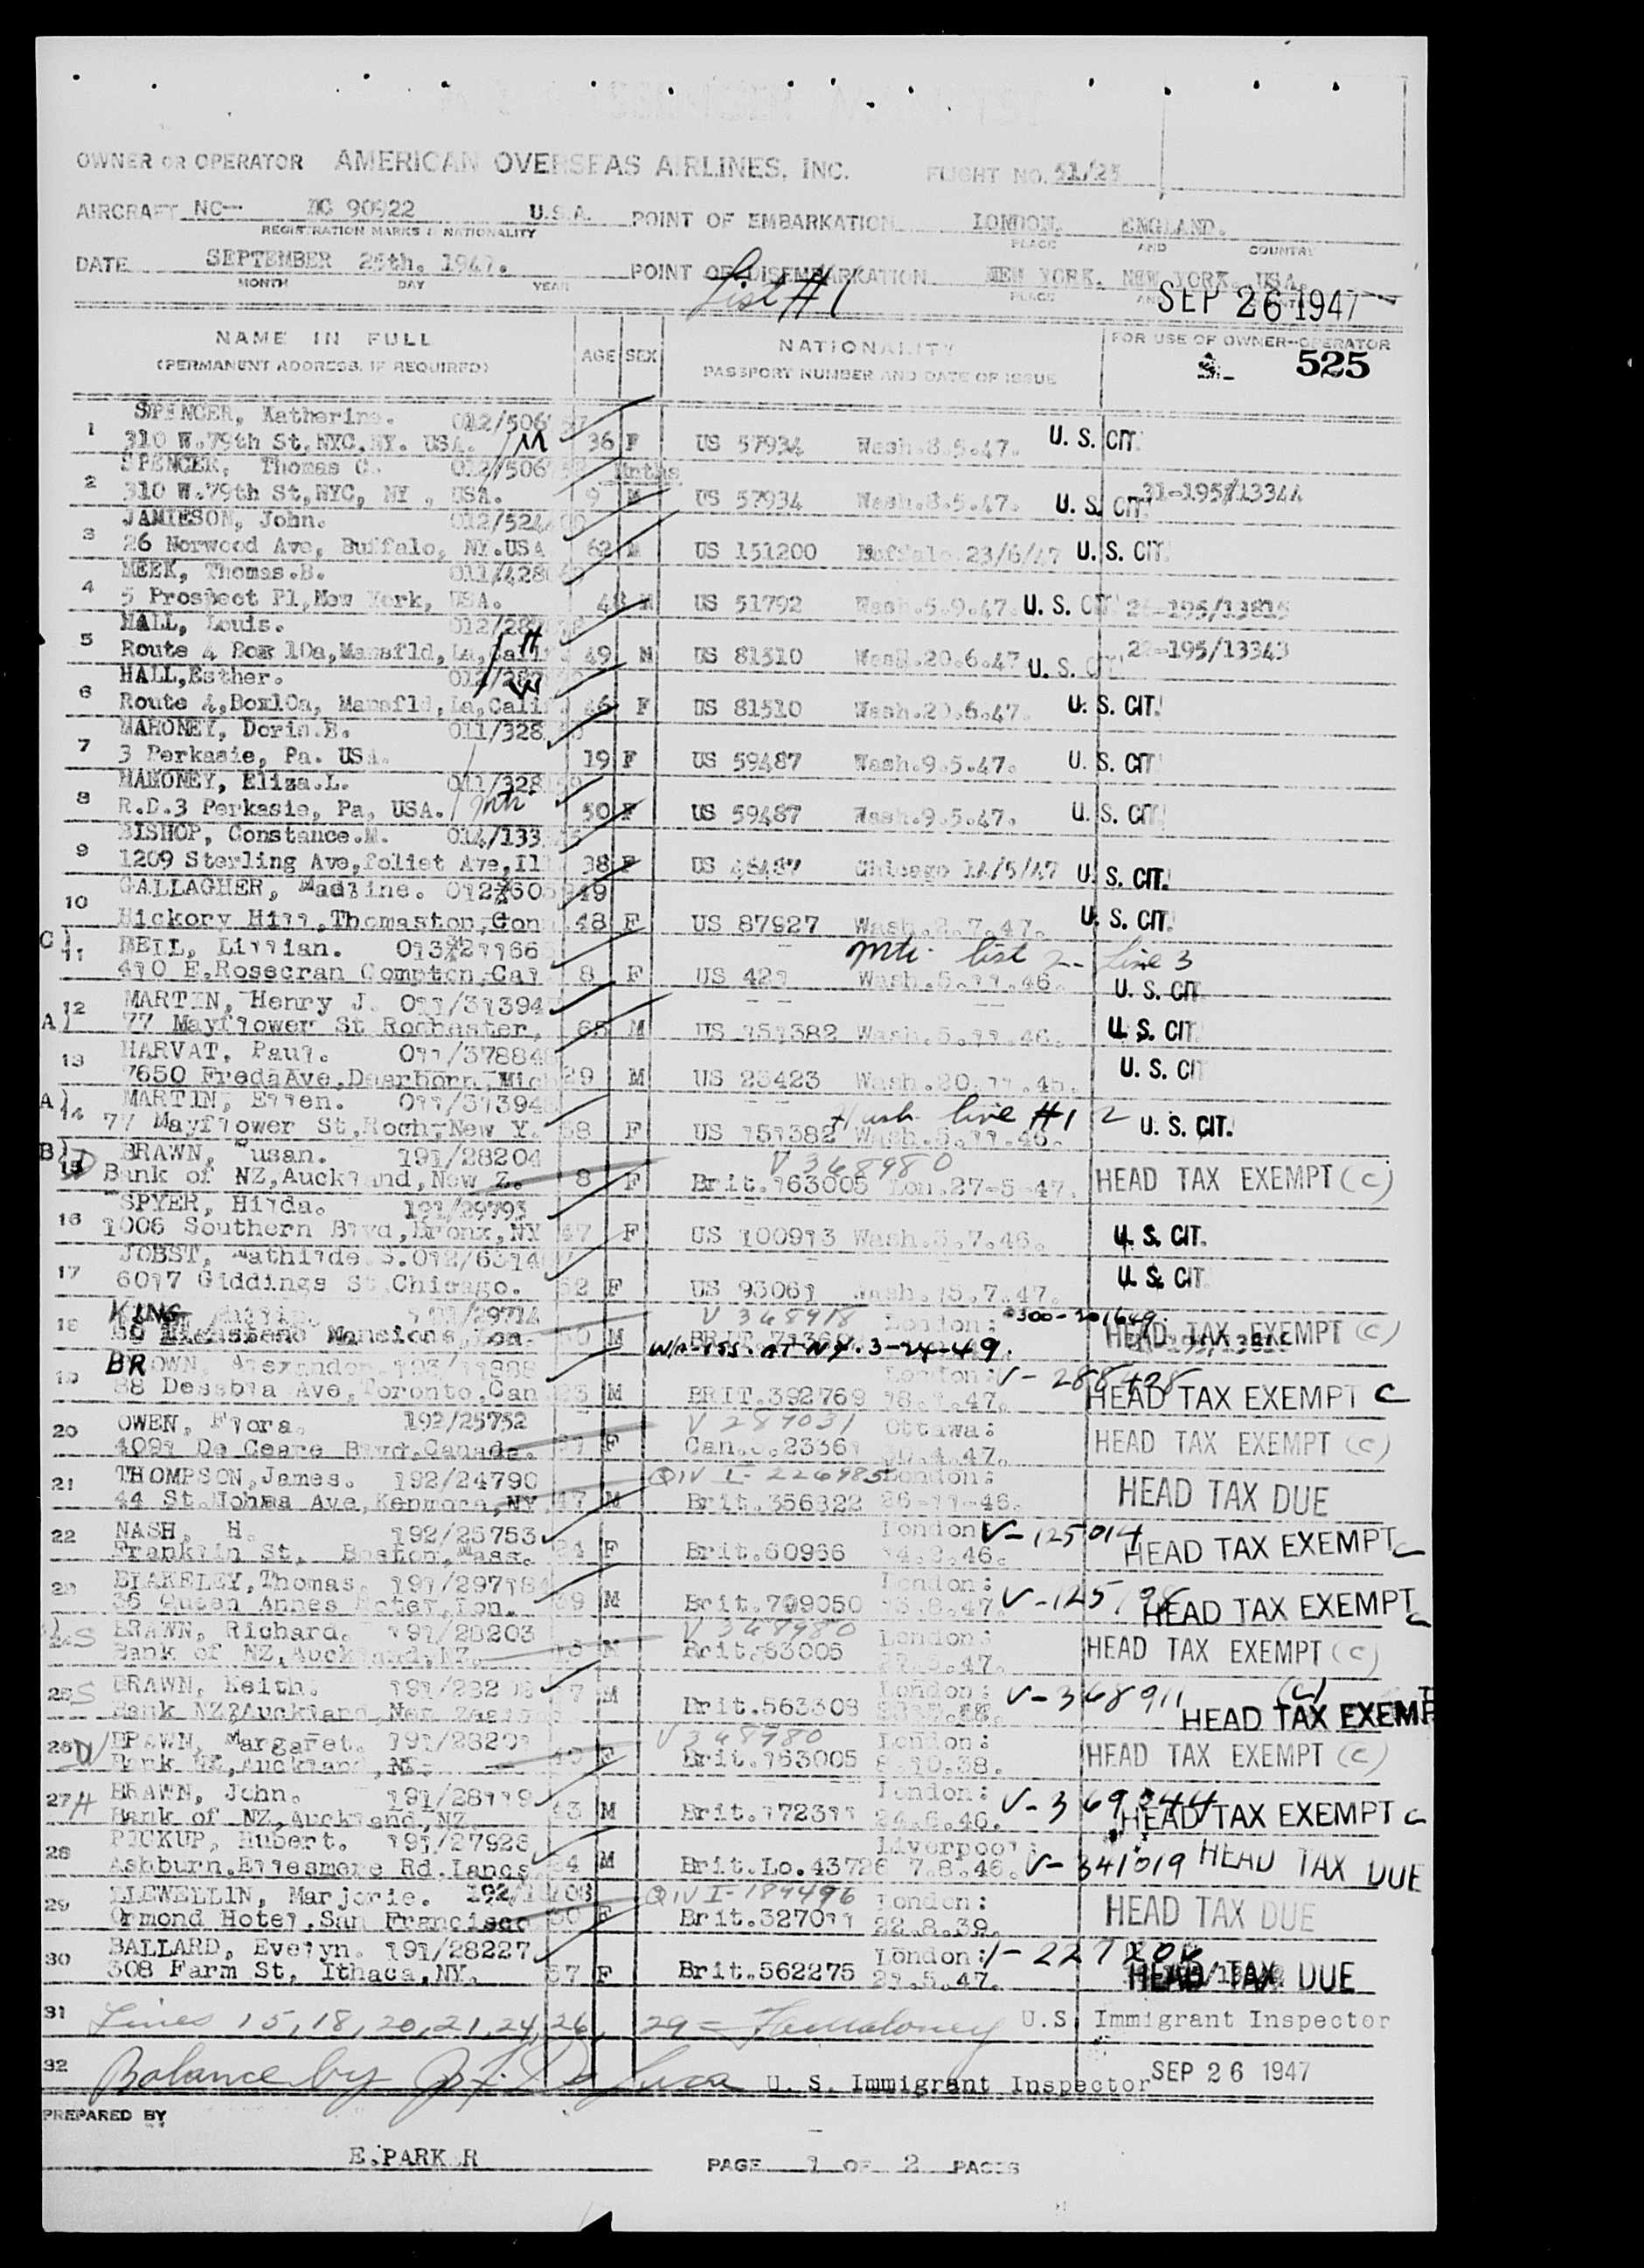 OWNER OR OPERATOR AMERICAN OVERSEAS AIRLINES, INC. FLIGHT NO. 51/25
AIRCRAFT NC- NC 90922 U.S.A. POINT OF EMBARKATION LONDON, ENGLAND.
REGISTRATION MARKS & NATIONALITY PLACE AND COUNTRY
DATE SEPTEMBER 25th. 1947. POINT OF DISEMBARKATION NEW YORK, NEW YORK, USA.
MONTH DAY YEAR PLACE AND
List #1 SEP 26 1947
NAME IN FULL AGE SEX NATIONALITY FOR USE OF OWNER-OPERATOR
(PERMANENT ADDRESS, IF REQUIRED) PASSPORT NUMBER AND DATE OF ISSUE 525
SPENCER, Katherine. 012/506
1 310 W.79th St,NYC.NY. USA. M 36 F US 57934 Wash.8.5.47. U. S. CIT.
SPENCER, Thomas C. 012/506 Mnths
2 310 W.79th St,NYC, NY , USA. 9 M US 57934 Wash.8.5.47. U. S. CIT 21-195/13344
JAMIESON, John. 012/524
3 26 Norwood Ave, Buffalo, NY.USA 62 M US 151200 Buffalo.23/6/47 U. S. CIT.
MEEK, Thomas.B. 011/428
4 5 Prospect Pl,New York, USA. 48 M US 51792 Wash.5.9.47. U. S. CIT 195/13815
HALL, Louis. 012/287
5 Route 4 Box 10a,Mansfld,La,Cali H 49 M US 81510 Wash.20.6.47 U. S. CIT 22-195/13343
HALL,Esther. 012/287
6 Route 4,Box10a, Mansfld,La,Cali W 46 F US 81510 Wash.20.6.47. U. S. CIT.
MAHONEY, Doris.E. 011/328
7 3 Perkasie, Pa. USA. 19 F US 59487 Wash.9.5.47. U. S. CIT
MAHONEY, Eliza.L. 011/328
8 R.D.3 Perkasie, Pa, USA. mti 50 F US 59487 Wash.9.5.47. U. S. CIT
BISHOP, Constance.M. 014/133
9 1209 Sterling Ave,Joliet Ave,Il 38 F US 48487 Chicago 14/5/47 U. S. CIT.
GALLAGHER, Madline. 012/605949
10 Hickory Hill,Thomaston,Con 48 F US 87927 Wash.2.7.47. U. S. CIT.
C) BEIL, Lillian. 013/21166 mti. list 2- Line 3
11 410 E.Rosecran Compton,Cal 8 F US 421 Wash.5.11.46. U. S. CIT
12 MARTIN, Henry J. 011/31394
A) 77 Mayflower St Rochester, 65 M US 151382 Wash.5.11.46. U. S. CIT.
13 HARVAT, Paul. 011/37884
7650 FredaAve,Dearborn,Mich 29 M US 23423 Wash.20.11.45. U. S. CIT
A) MARTIN, Ellen. 011/31394 Husb line #12
14 77 Mayflower St,Roch,New Y. 58 F US 151382 Wash.5.11.46. U. S. CIT.
B) D BRAWN, Susan. 191/28204 V 368980
15 Bank of NZ,Auckland,New Z. 8 F Brit.163005 Lon.27-5-47. HEAD TAX EXEMPT (C)
SPYER, Hilda. 191/29793
16 1006 Southern Blvd,Bronx,NY 47 F US 100913 Wash.5.7.46. U. S. CIT.
JOBST, Mathilde S.012/6314
17 6017 Giddings St Chicago. 52 F US 93061 Wash.15.7.47. U. S. CIT
KING 191/29714 V 368918 London: 0300-201649
18 Mansions,Lon. 50 M BRIT. HEAD TAX EXEMPT (C)
W/A-ISS. AT NY. 3-24-49.
BROWN, Alexander 193/11888 London: V-288428
19 88 Ave,Toronto,Can 23 M BRIT.392769 HEAD TAX EXEMPT C
OWEN, Flora. 192/25752 V 287031 Ottawa:
20 4091 De Ceare Blvd,Canada. F Can. 23361 30.4.47. HEAD TAX EXEMPT (C)
THOMPSON,James. 192/24790 QIV I- 226985 London:
21 44 St.Johns Ave,Kenmore,NY 47 M Brit.356322 26-11-46. HEAD TAX DUE
NASH, H. 192/25753 London: V-125014
22 Franklin St, Boston,Mass. 24 F Brit.60966 14.2.46. HEAD TAX EXEMPT C
BLAKELEY,Thomas. 191/29718 London: V-125198
23 36 Queen Annes Hotel,Lon. 39 M Brit.709050 15.8.47. HEAD TAX EXEMPT C
BRAWN, Richard. 191/28203 V 368980 London:
24 S Bank of NZ,Auckland,NZ. M Brit.63005 27.5.47. HEAD TAX EXEMPT (C)
BRAWN, Keith. 191/28202 London: V-368911 (C)
25 S Bank NZ,Auckland,New Zea 17 M Brit.563308 HEAD TAX EXEMPT
BRAWN, Margaret. 191/28201 V 368980 London:
26 W Bank NZ,Auckland,NZ 43 F Brit.163005 6.10.38. HEAD TAX EXEMPT (C)
BRAWN, John. 191/28119 London: V-369344
27 H Bank of NZ,Auckland,NZ. 43 M Brit.172311 24.6.46. HEAD TAX EXEMPT C
PICKUP, Hubert. 191/27928 Liverpool:
28 Ashburn,Ellesmere Rd.Lancs 34 M Brit.Lo.43726 7.8.46. V-341019 HEAD TAX DUE
LLEWELLIN, Marjorie. QIV I-189496 London:
29 Ormond Hotel,San Francisco 30 F Brit.327011 22.8.39. HEAD TAX DUE
BALLARD, Evelyn. 191/28227 London: I-227206
30 308 Farm St, Ithaca,NY. 57 F Brit.562275 21.5.47. HEAD TAX DUE
31 Lines 15,18,20,21,24,26, 29 = U.S. Immigrant Inspector
32 Balance by J.F. De Luca U. S. Immigrant Inspector SEP 26 1947
PREPARED BY
E.PARK R PAGE 1 OF 2 PAGES